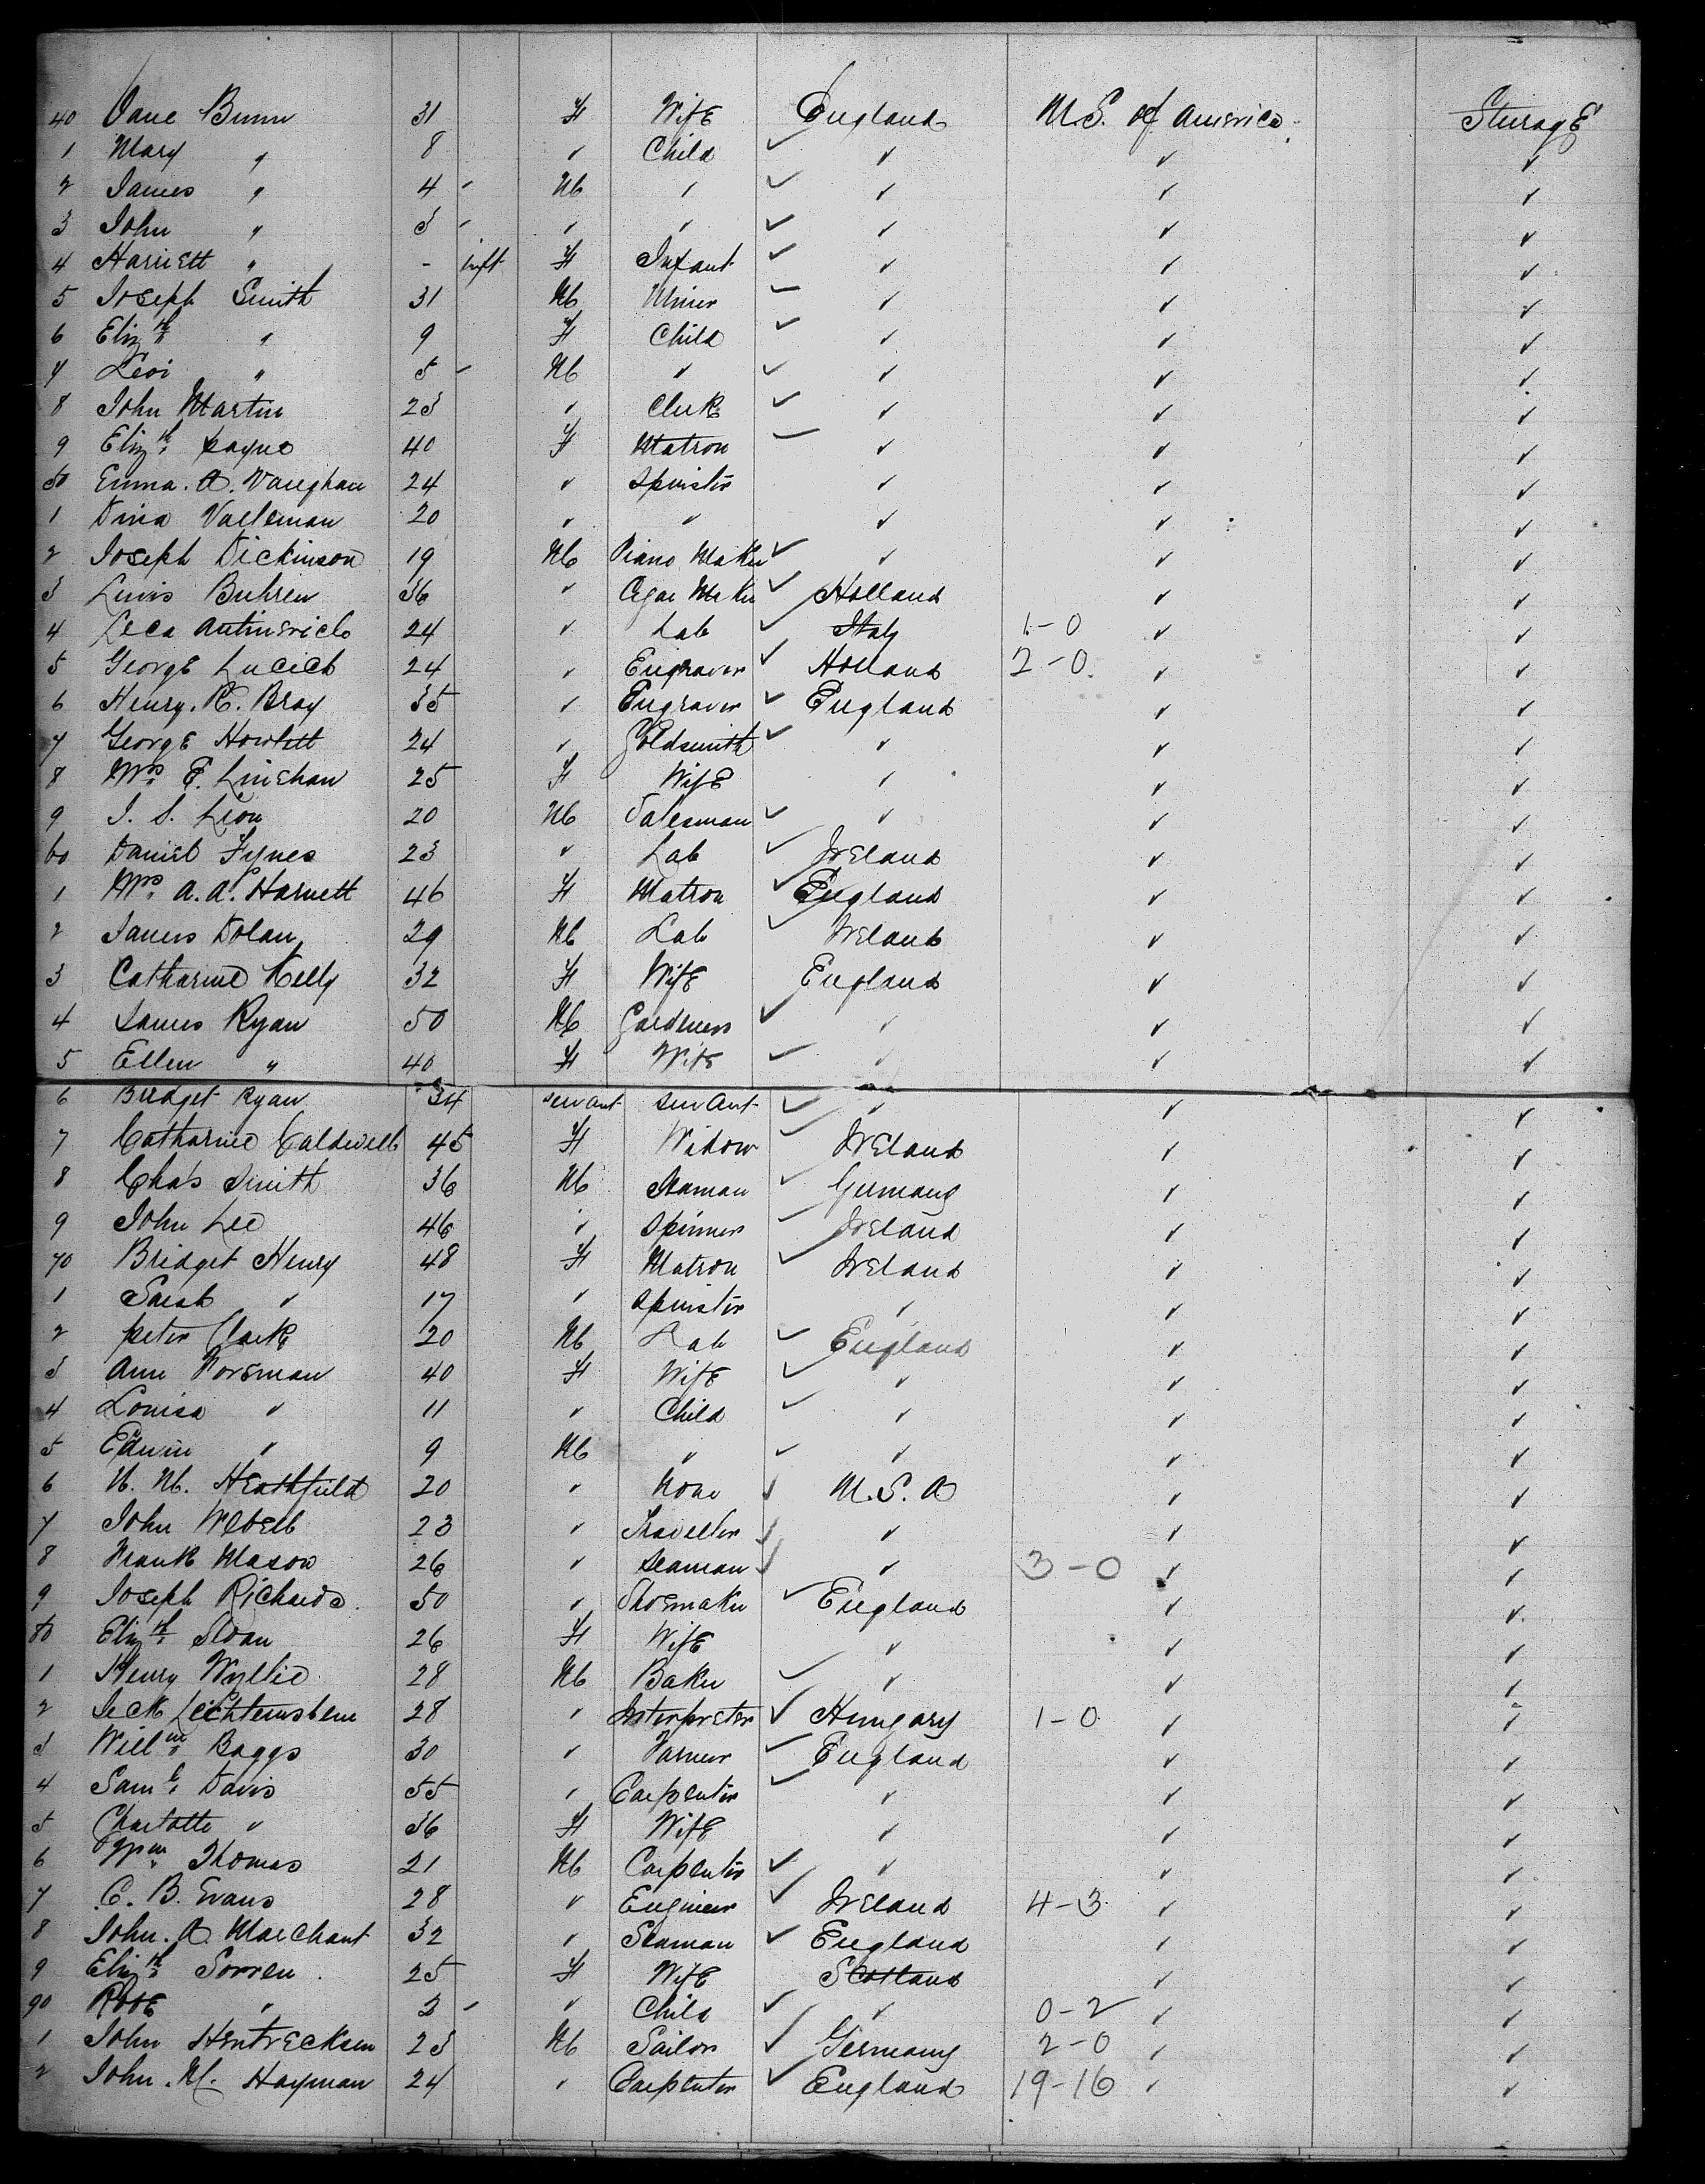 40 Jane Bunn 31 F Wife England U.S. of America Steerage
1 Mary " 8 " Child ✓ " " "
2 James " 4 - M " ✓ " " "
3 John " 3 - " " ✓ " " "
4 Harriett " - inft F Infant ✓ " " "
5 Joseph Smith 31 M Miner ✓ " " "
6 Elizth " 9 F Child ✓ " " "
7 Levi " 5 - M " ✓ " " "
8 John Martin 23 " Clerk ✓ " " "
9 Elizth Payne 40 F Matron ✓ " " "
50 Emma. A. Vaughan 24 " Spinster " " "
1 Dina 20 " " " " "
2 Joseph Dickinson 19 M Piano Maker ✓ " " "
3 Lewis Buhren 36 " Cigar Maker ✓ Holland " "
4 Leca 24 " Lab ✓ Italy 1-0 " "
5 George Lucich 24 " Engraver ✓ Holland 2-0 " "
6 Henry. R. Bray 35 " Engraver ✓ England " "
7 George Howlett 24 " Goldsmith ✓ " " "
8 Mrs E. Linehan 25 F Wife " " "
9 J. S. Lion 20 M Salesman ✓ " " "
60 Daniel Fynes 23 " Lab ✓ Ireland " "
1 Mrs A. A. Harnett 46 F Matron ✓ England " "
2 James Dolan 29 M Lab ✓ Ireland " "
3 Catharine Kelly 32 F Wife England " "
4 James Ryan 50 M Gardener ✓ " " "
5 Ellen " 40 F Wife ✓ " " "
6 Bridget Ryan 34 servant servant ✓ " " "
7 Catharine Caldwell 45 F Widow ✓ Ireland " "
8 Chas Smith 36 M Seaman ✓ Germany " "
9 John Lee 46 " Spinner ✓ Ireland " "
70 Bridget Henry 48 F Matron ✓ Ireland " "
1 Sarah " 17 " Spinster " " "
2 Peter Clark 20 M Lab ✓ England " "
3 Ann Forsman 40 F Wife ✓ " " "
4 Louisa " 11 " Child ✓ " " "
5 Edwin " 9 M " ✓ " " "
6 Heathfield 20 " None ✓ U.S. A " "
7 John 23 " Traveller ✓ " " "
8 Frank Mason 26 " Seaman ✓ " 3-0 " "
9 Joseph Richards 50 " Shoemaker ✓ England " "
80 Elizth Sloan 26 F Wife " " "
1 Henry Wyllie 28 M Baker ✓ " " "
2 28 " Interpreter ✓ Hungary 1-0 " "
3 Willm Baggs 30 " Farmer ✓ England " "
4 Saml Davis 55 " Carpenter ✓ " " "
5 Charlotte " 56 F Wife " " "
6 Wm Thomas 21 M Carpenter ✓ " " "
7 C. B. Evans 28 " Engineer ✓ Ireland 4-3 " "
8 John. A. Marchant 32 " Seaman ✓ England " "
9 Elizth Sorren 25 F Wife Scotland " "
90 Rose " 2 - " Child ✓ " 0-2 " "
1 John Hentrecksen 23 M Sailor ✓ Germany 2-0 " "
2 John. M. Hayman 24 " Carpenter ✓ England 19-16 " "